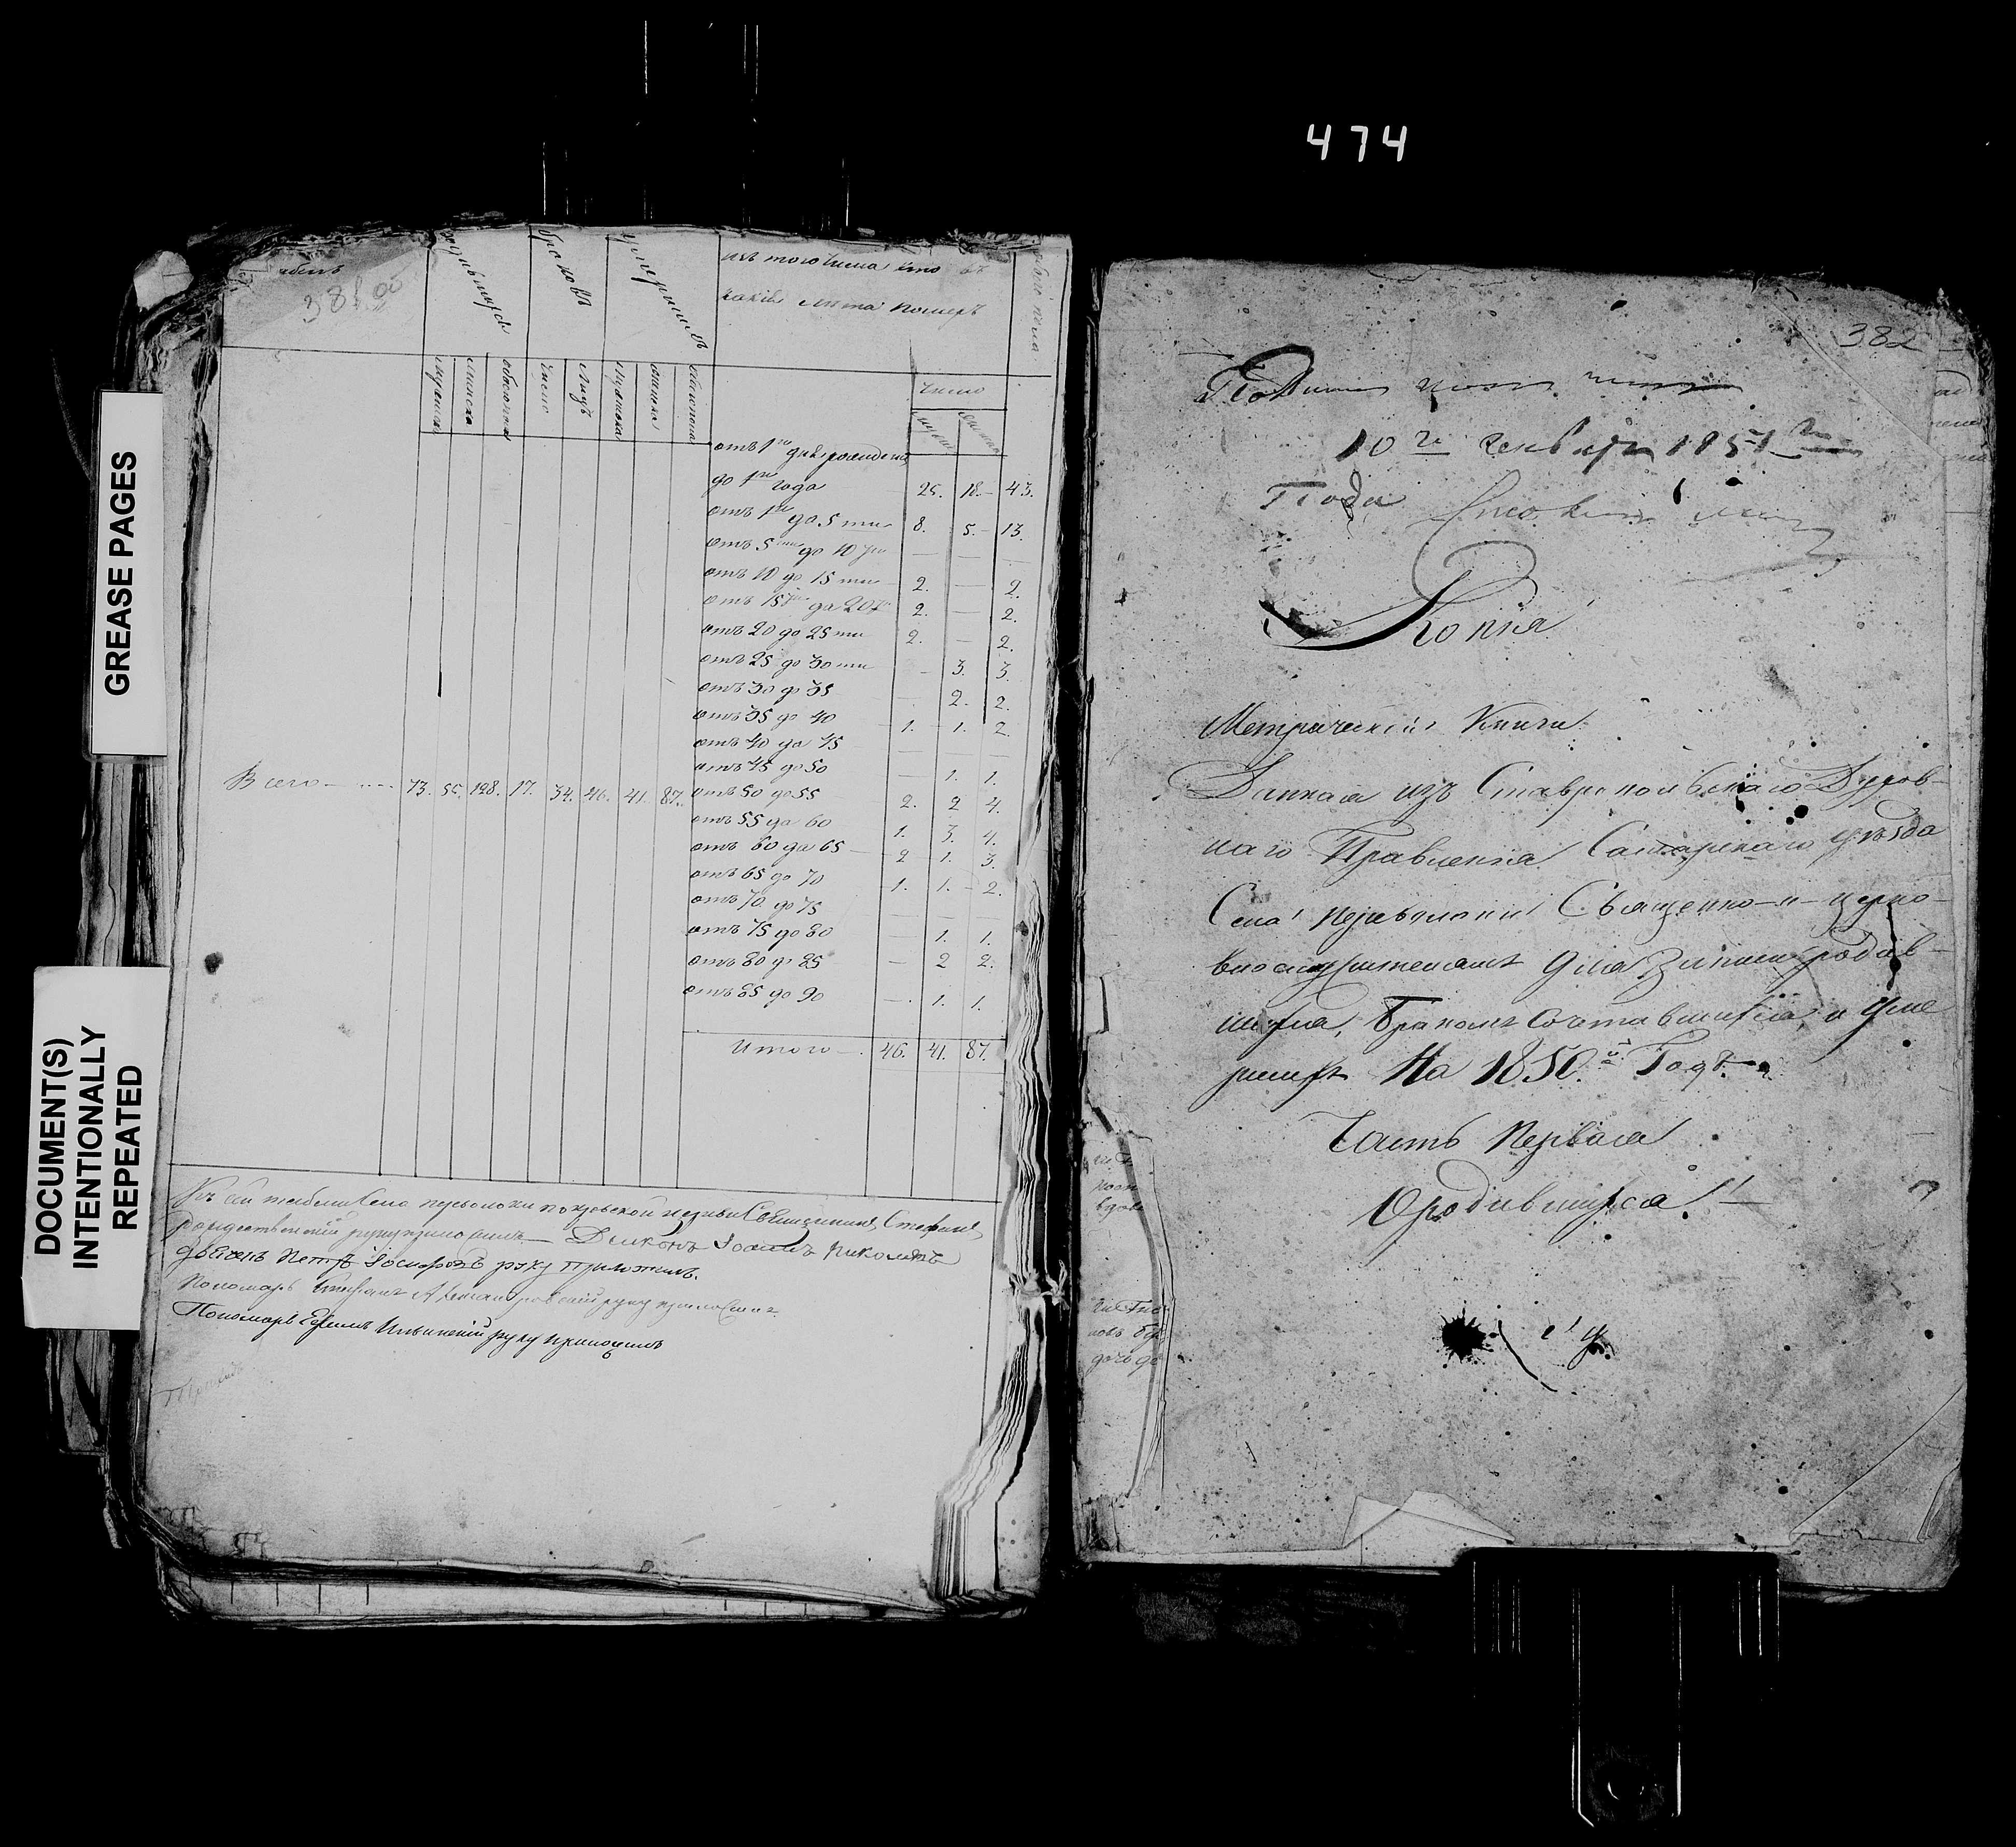 474
GREASE PAGES
DOCUMENT(S)
INTENTIONALLY
REPEATED
381 об
родившихся
браковъ
умершихъ
изъ того числа кто въ
какiя лета померъ
мужеска
женска
обоего пола
число
лицъ
мужеска
женска
обоего пола
число
отъ 1го дня рожденiя
до 1го года 25. 18. 43.
отъ 1го до 5 ти 8. 5. 13.
отъ 5ти до 10ти — — —
отъ 10 до 15 ти 2. — 2.
отъ 15ти до 20ти 2. — 2.
отъ 20 до 25 ти 2. — 2.
отъ 25 до 30 ти — 3. 3.
отъ 30 до 35 — 2. 2.
отъ 35 до 40 1. 1. 2.
отъ 40 до 45 — — —
отъ 45 до 50 — 1. 1.
Всего 73. 55. 128. 17. 34. 46. 41. 87.
отъ 50 до 55 2. 2 4.
отъ 55 до 60 1. 3. 4.
отъ 60 до 65 2 1. 3.
отъ 65 до 70 1. 1. 2.
отъ 70 до 75 — — —
отъ 75 до 80 — 1. 1.
отъ 80 до 85 — 2 2.
отъ 85 до 90 — 1. 1.
Итого 46. 41. 87.
Къ сей табели села переволоки покровской церкви Священникъ Стефанъ
Рождественскiй руку приложилъ — Дiаконъ Iоаннъ Николаевъ
дьячекъ Петръ руку приложилъ.
Пономарь Степанъ Александровскiй руку приложилъ
Пономарь Ефимъ Ильинскiй руку приложилъ
382
10го Генваря 1851го
Года
Копiя
Метрической Книги
Данная изъ Ставропольскаго Духов-
наго Правленiя Самарскаго уезда
Села переволоки Священно-и-церко-
внослужителямъ для записи родив-
шихся, бракомъ сочетавшихся, и уме
ршихъ На 1850.й Годъ.
Часть Первая
О родившихся